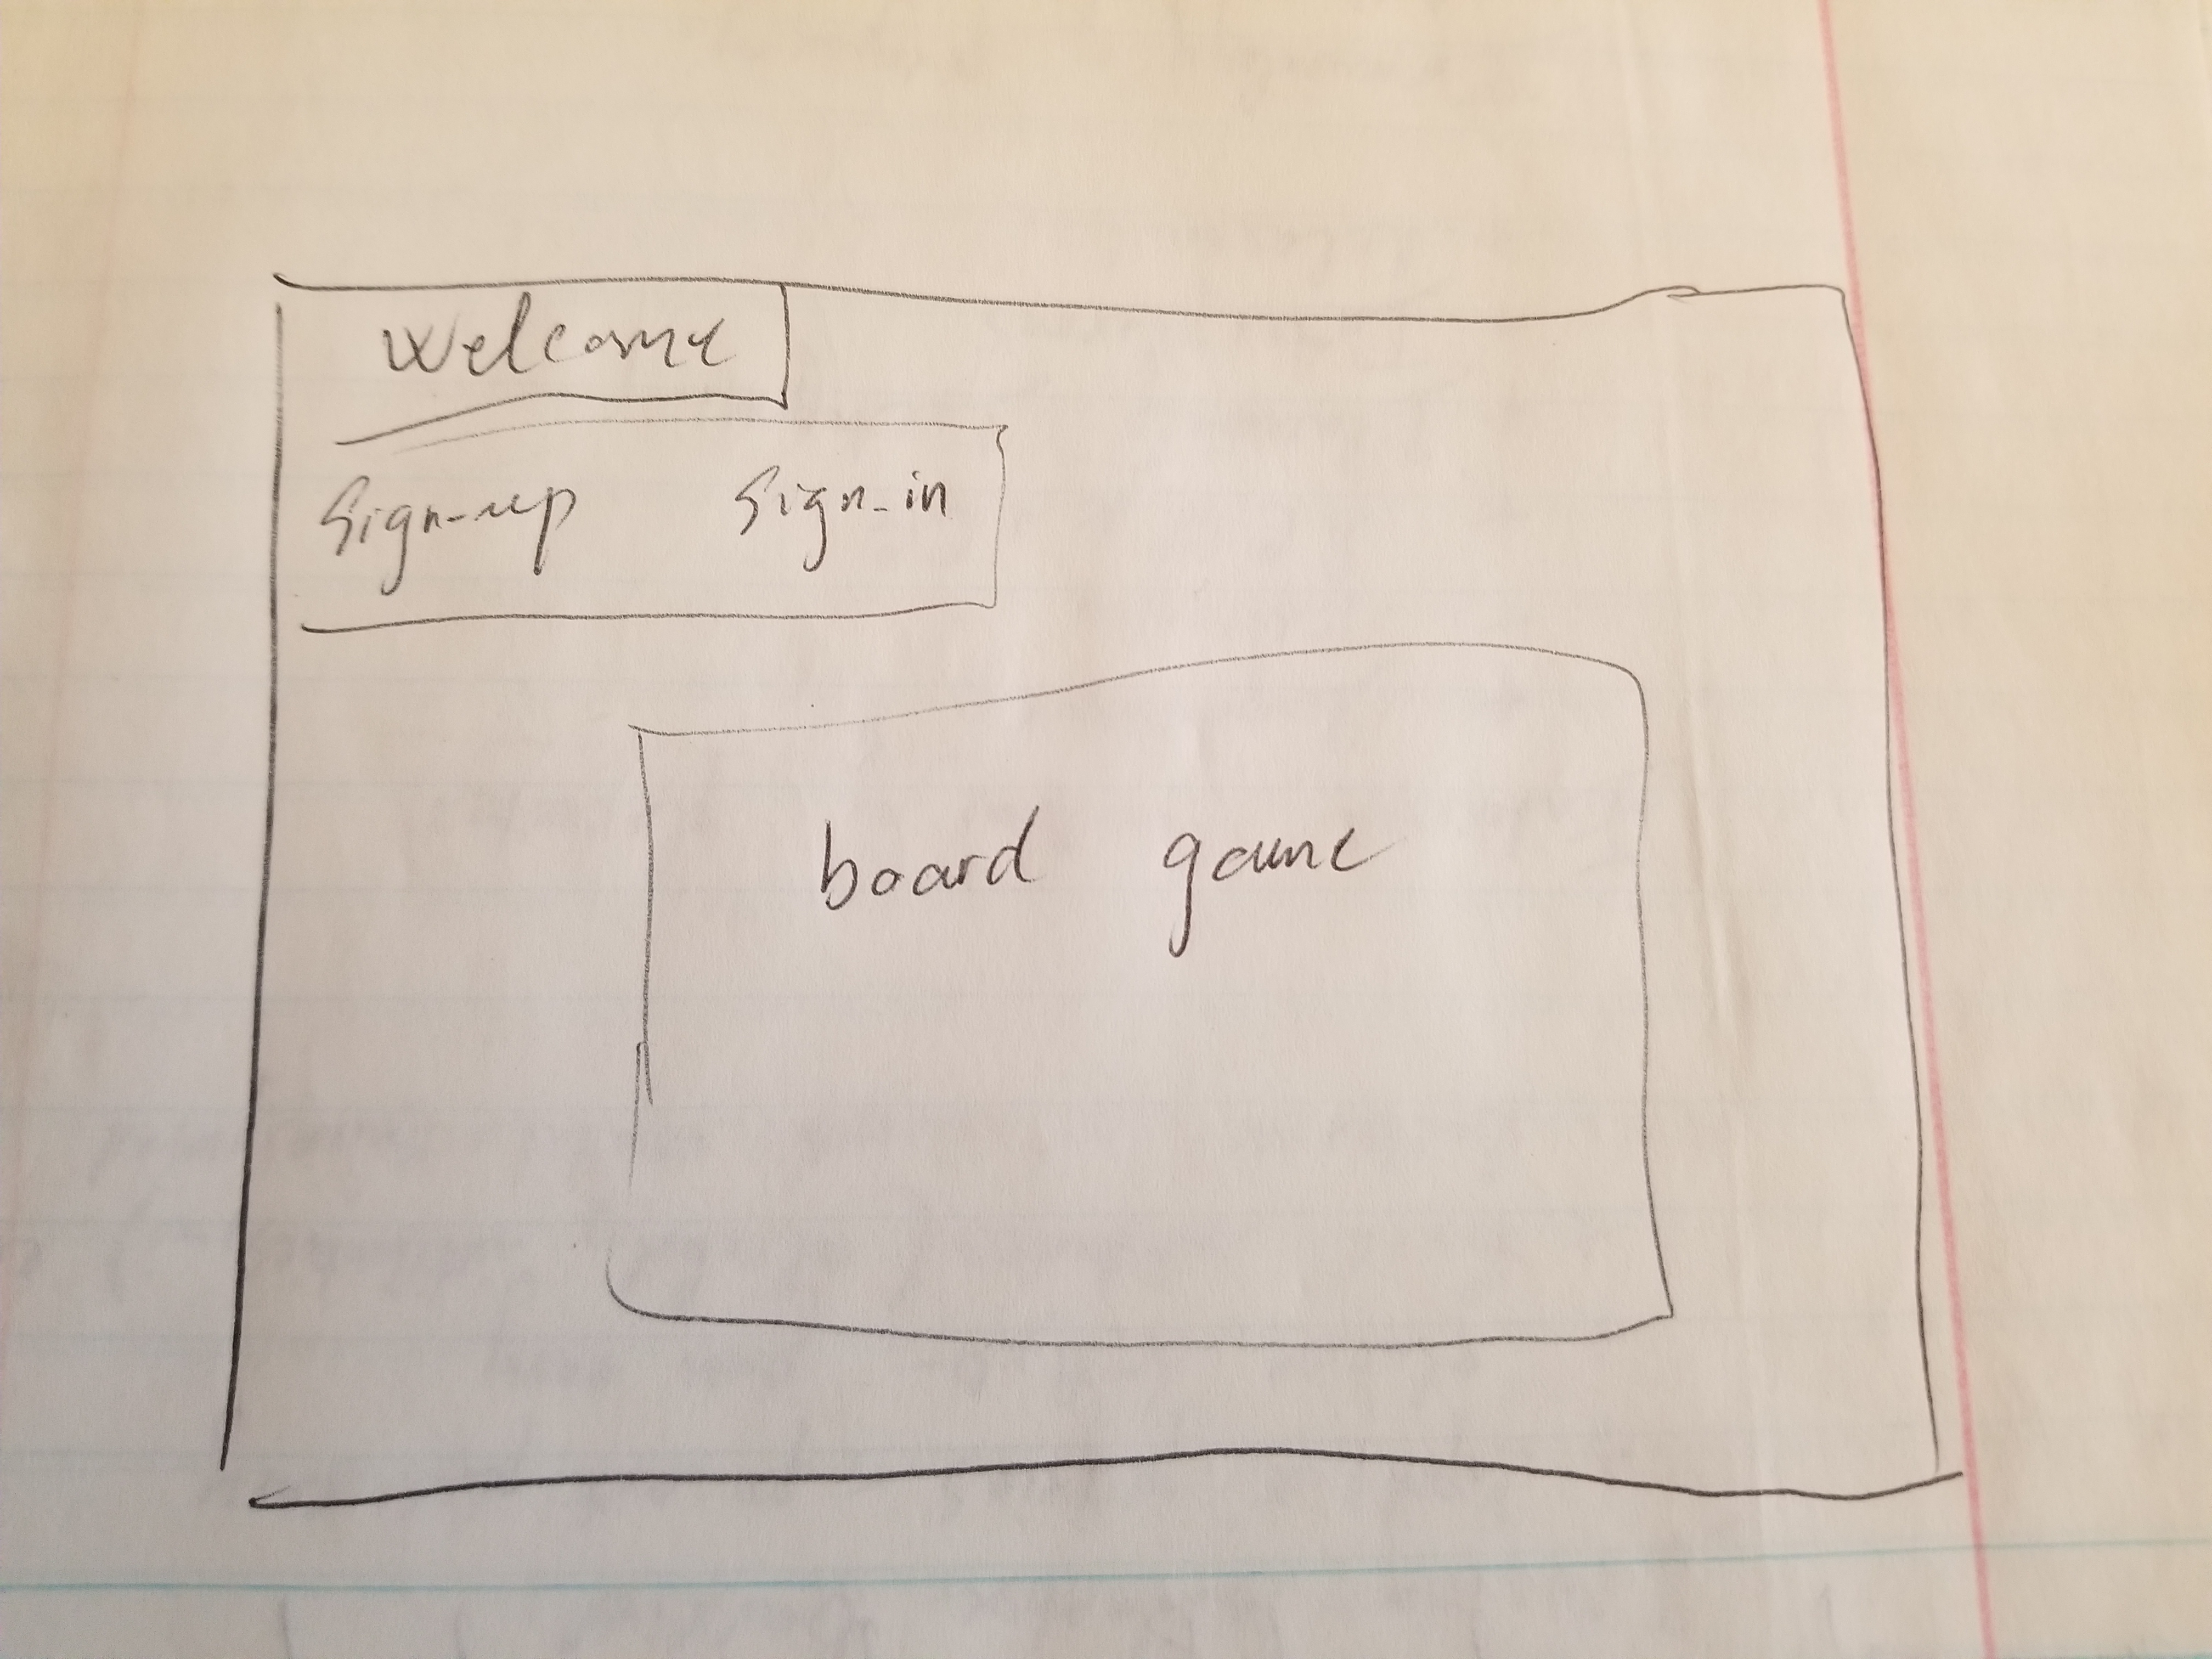 Welcome
Sign-up Sign-in
board game